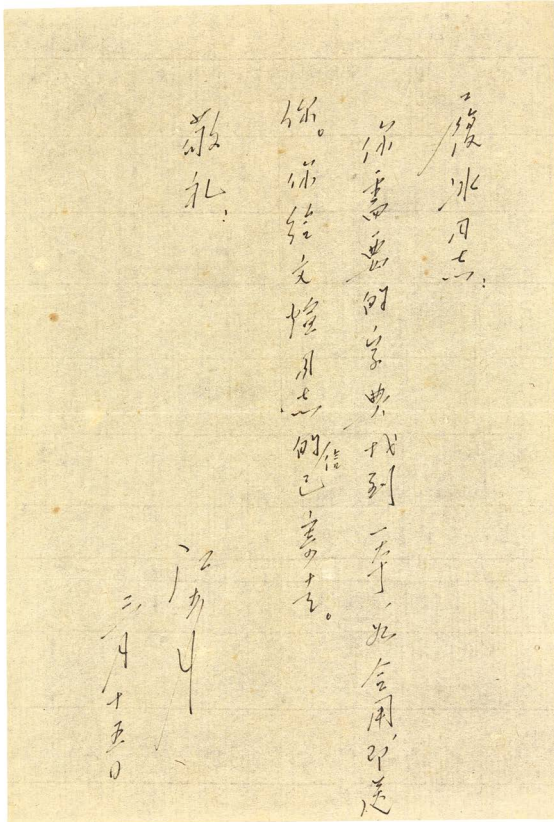 履冰同志：
你需要的字典找到一本，如合用，即送
你。你给文煊同志的信已寄去。
敬礼！
江
二月十五日